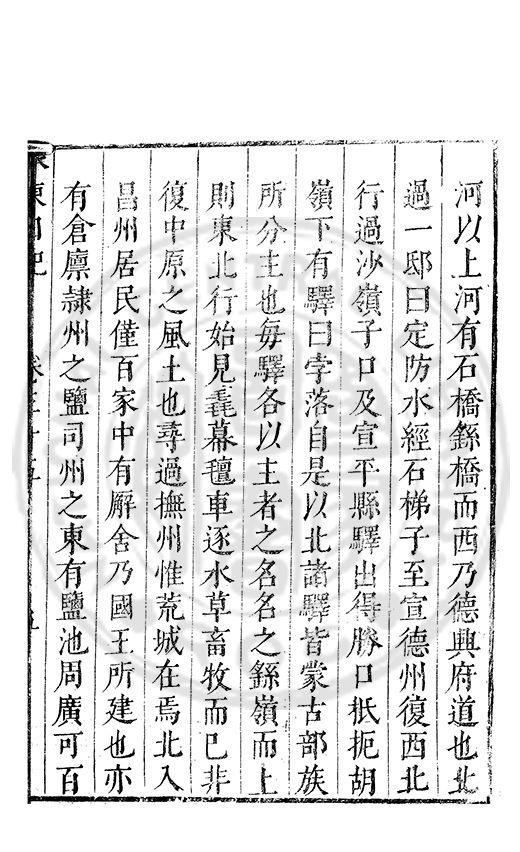 河以上河有石橋繇橋而西乃德興府道也北
過一邸曰定防水經石梯子至宣德州復西北
行過沙嶺子口及宣平縣驛出得勝口抵扼胡
嶺下有驛曰孛落自是以北諸驛皆蒙古部族
所分主也每驛各以主者之名名之繇嶺而上
則東北行始見毳幕氊車逐水草畜牧而已非
復中原之風土也尋過撫州惟荒城在焉北入
昌州居民僅百家中有廨舍乃國王所建也亦
有倉廩隸州之鹽司州之東有鹽池周廣可百